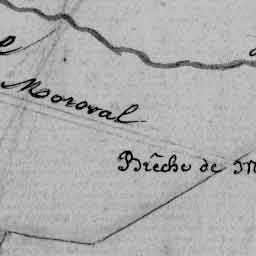 Moroval
Brêche de